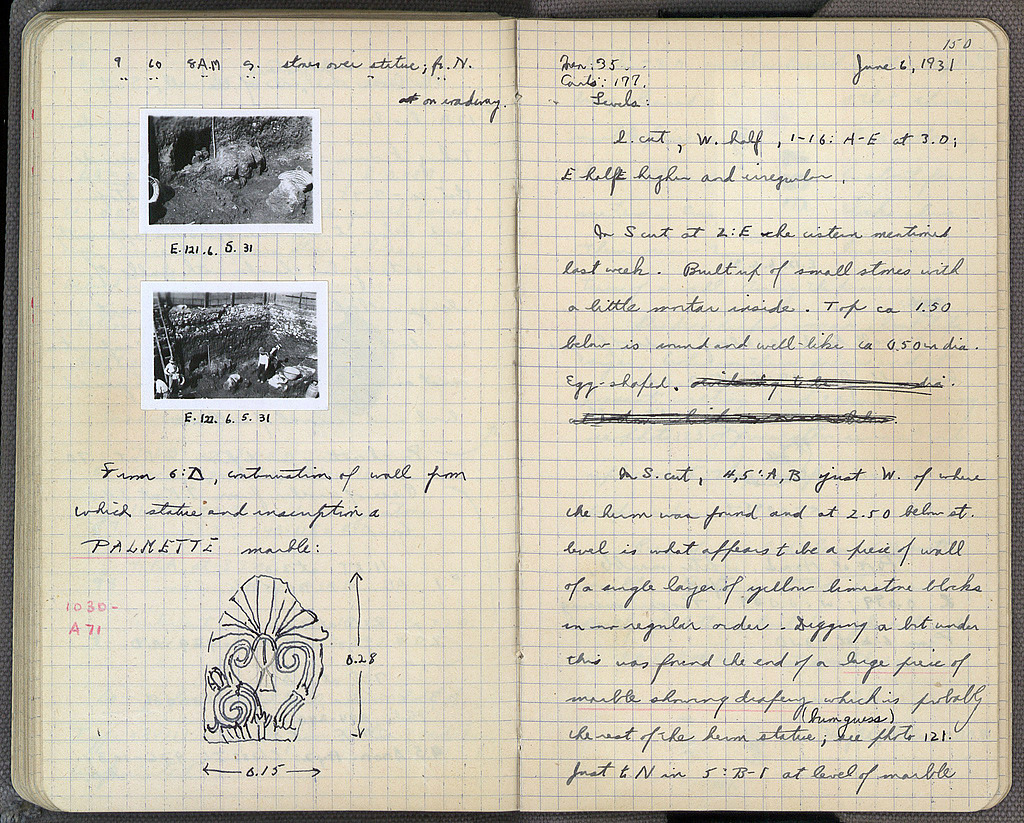 9 60 8AM S. stones over statue; fr. N.
on roadway.
E.121.6.5.31
E.122.6.5.31
From 6:Δ, continuation of wall from
which statue and inscription a
PALMETTE marble:
1030-
A71
0.28
0.15
150
June 6, 1931
Men: 35.
Carts: 177.
Levels:
S. cut, W. half, 1-16: A-E at 3.0;
E half higher and irregular.
In S cut at 2:E the cistern mentioned
last week. Built up of small stones with
a little mortar inside. Top ca 1.50
below is round and well-like ca 0.50m dia.
Egg-shaped.
In S. cut, 4,5:A,B just W. of where
the herm was found and at 2.50 below st.
level is what appears to be a piece of wall
of a single layer of yellow limestone blocks
in no regular order. Digging a bit under
this was found the end of a large piece of
marble showing drapery which is probably
(bum guess)
the rest of the herm statue; see photo 121.
Just to N in 5:B-Γ at level of marble